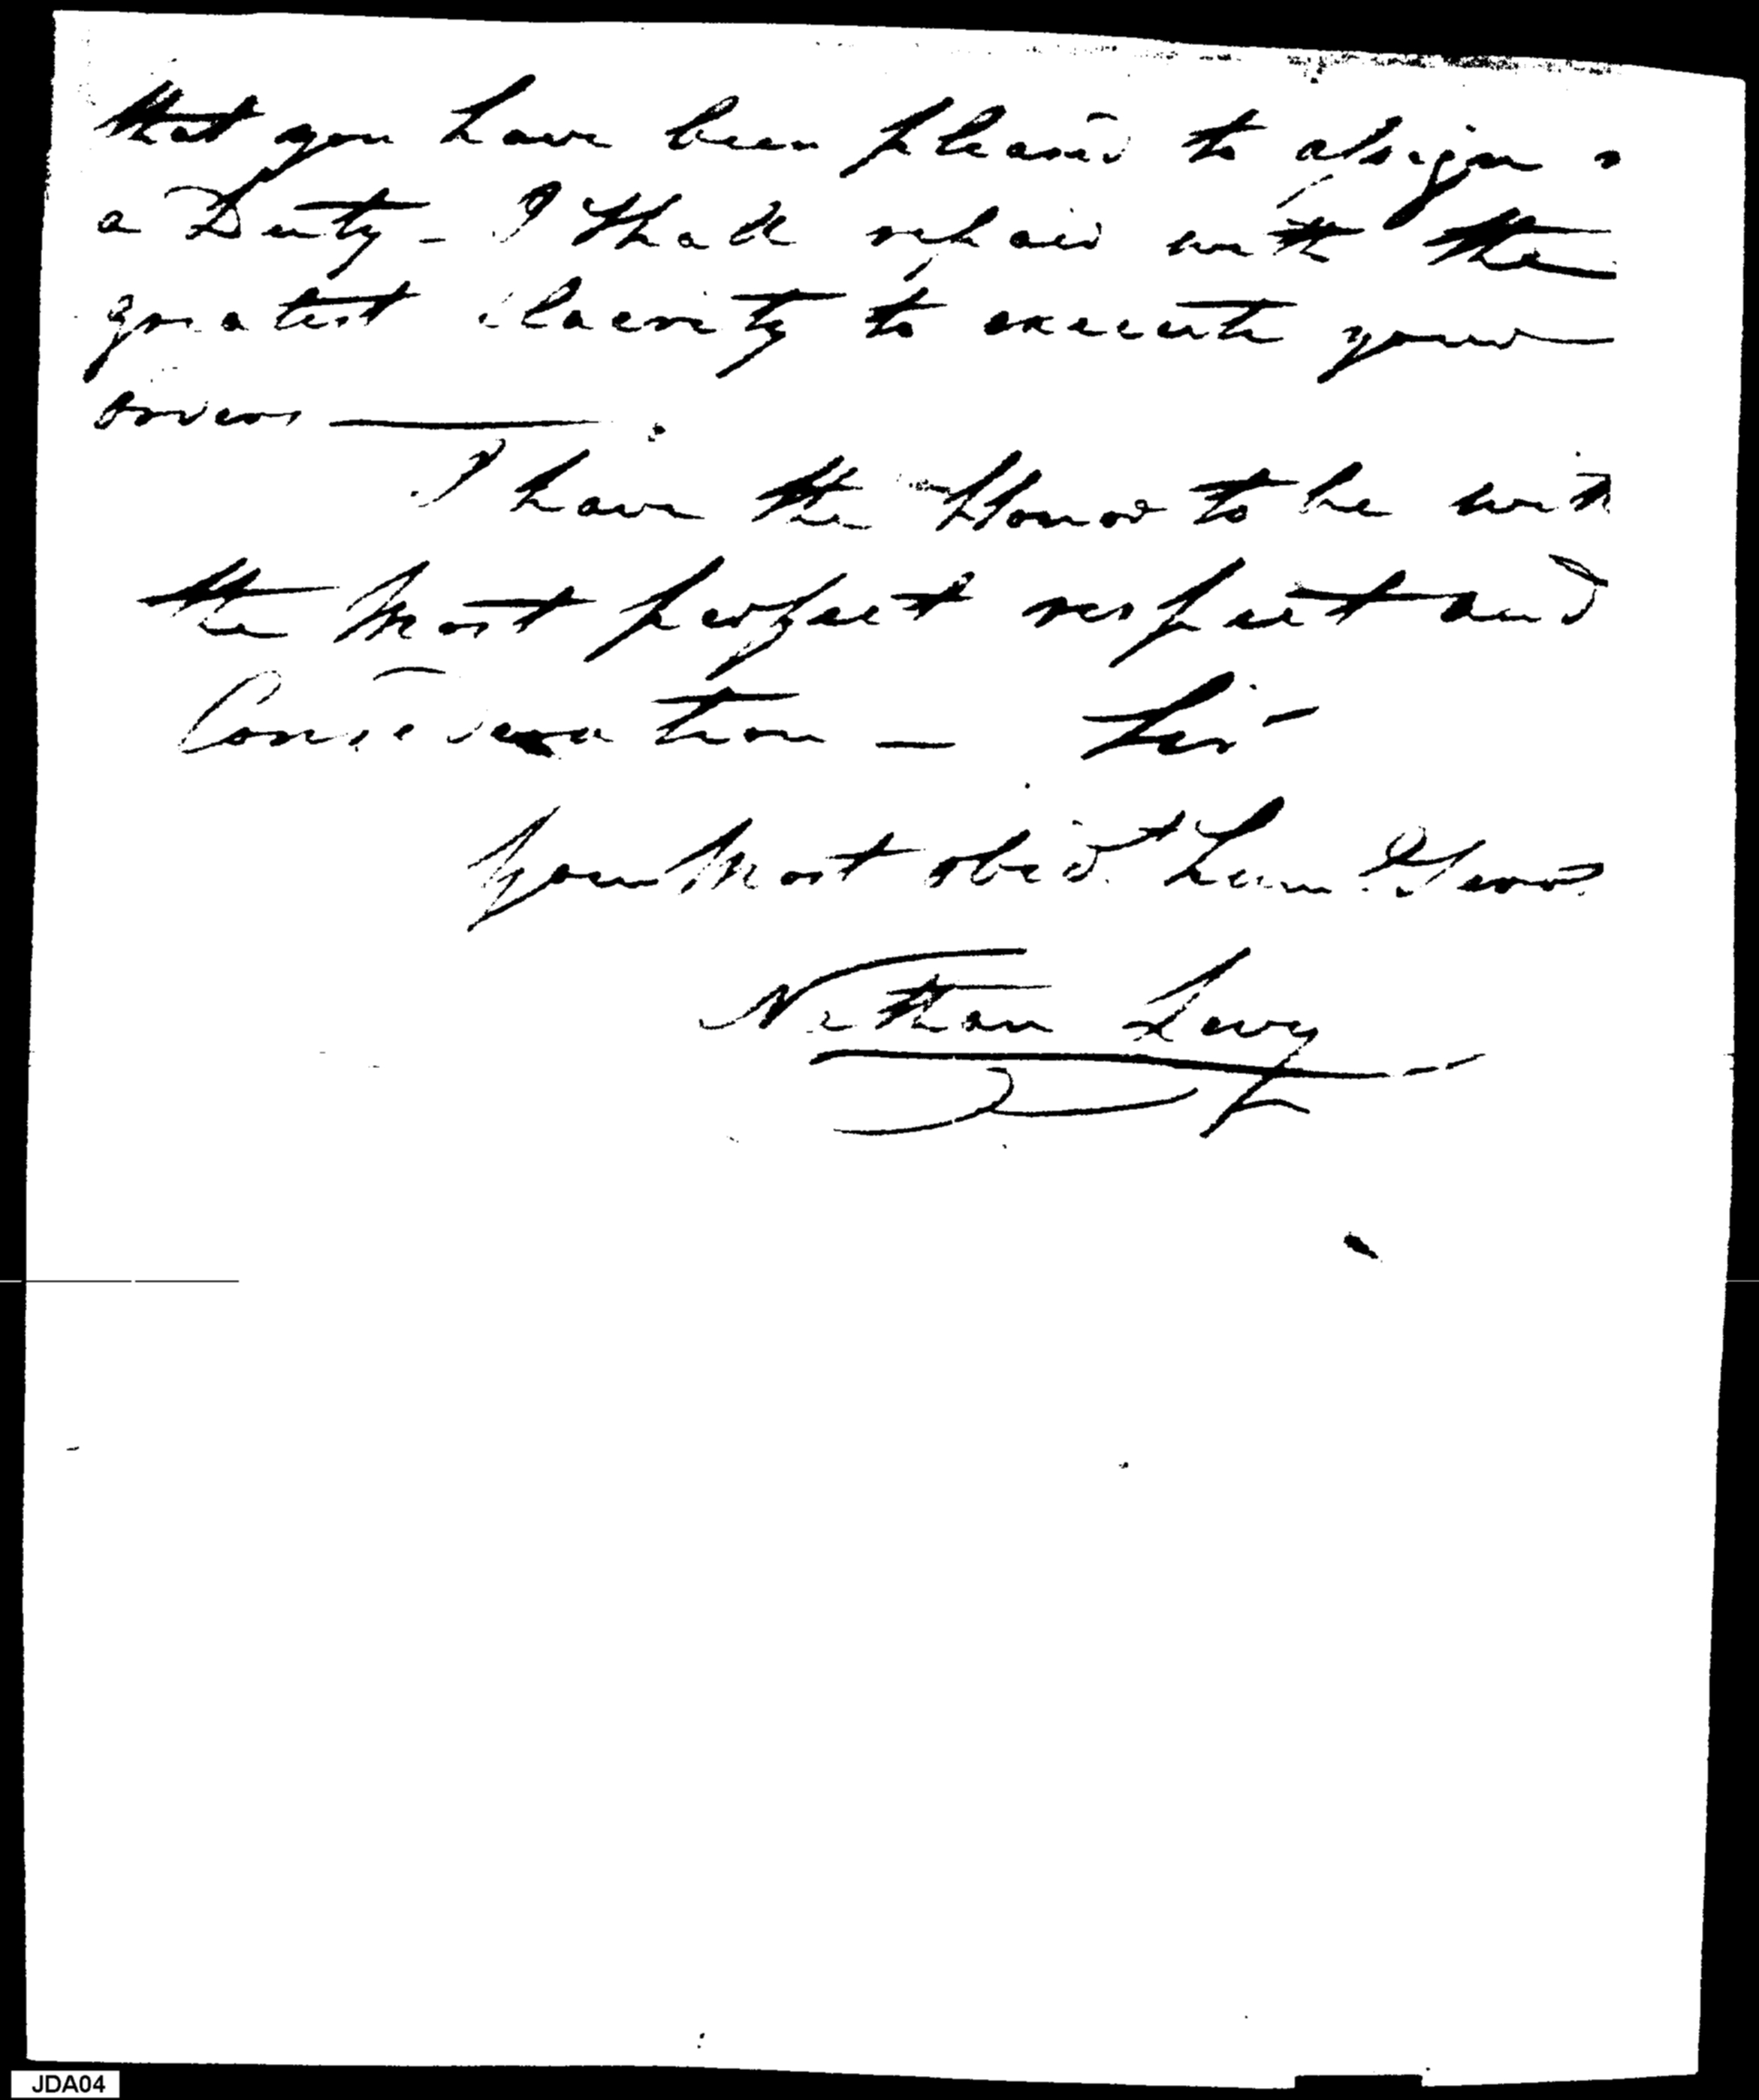 that you have been pleased to assign
a Duty - I shall repair with the
greatest alacrity to execute your
orders
I have the Honor to be with
the Most perfect respect and
Consideration — Sir -
Your Most obedt. Hum. Serv
Nathan Levy
JDA04